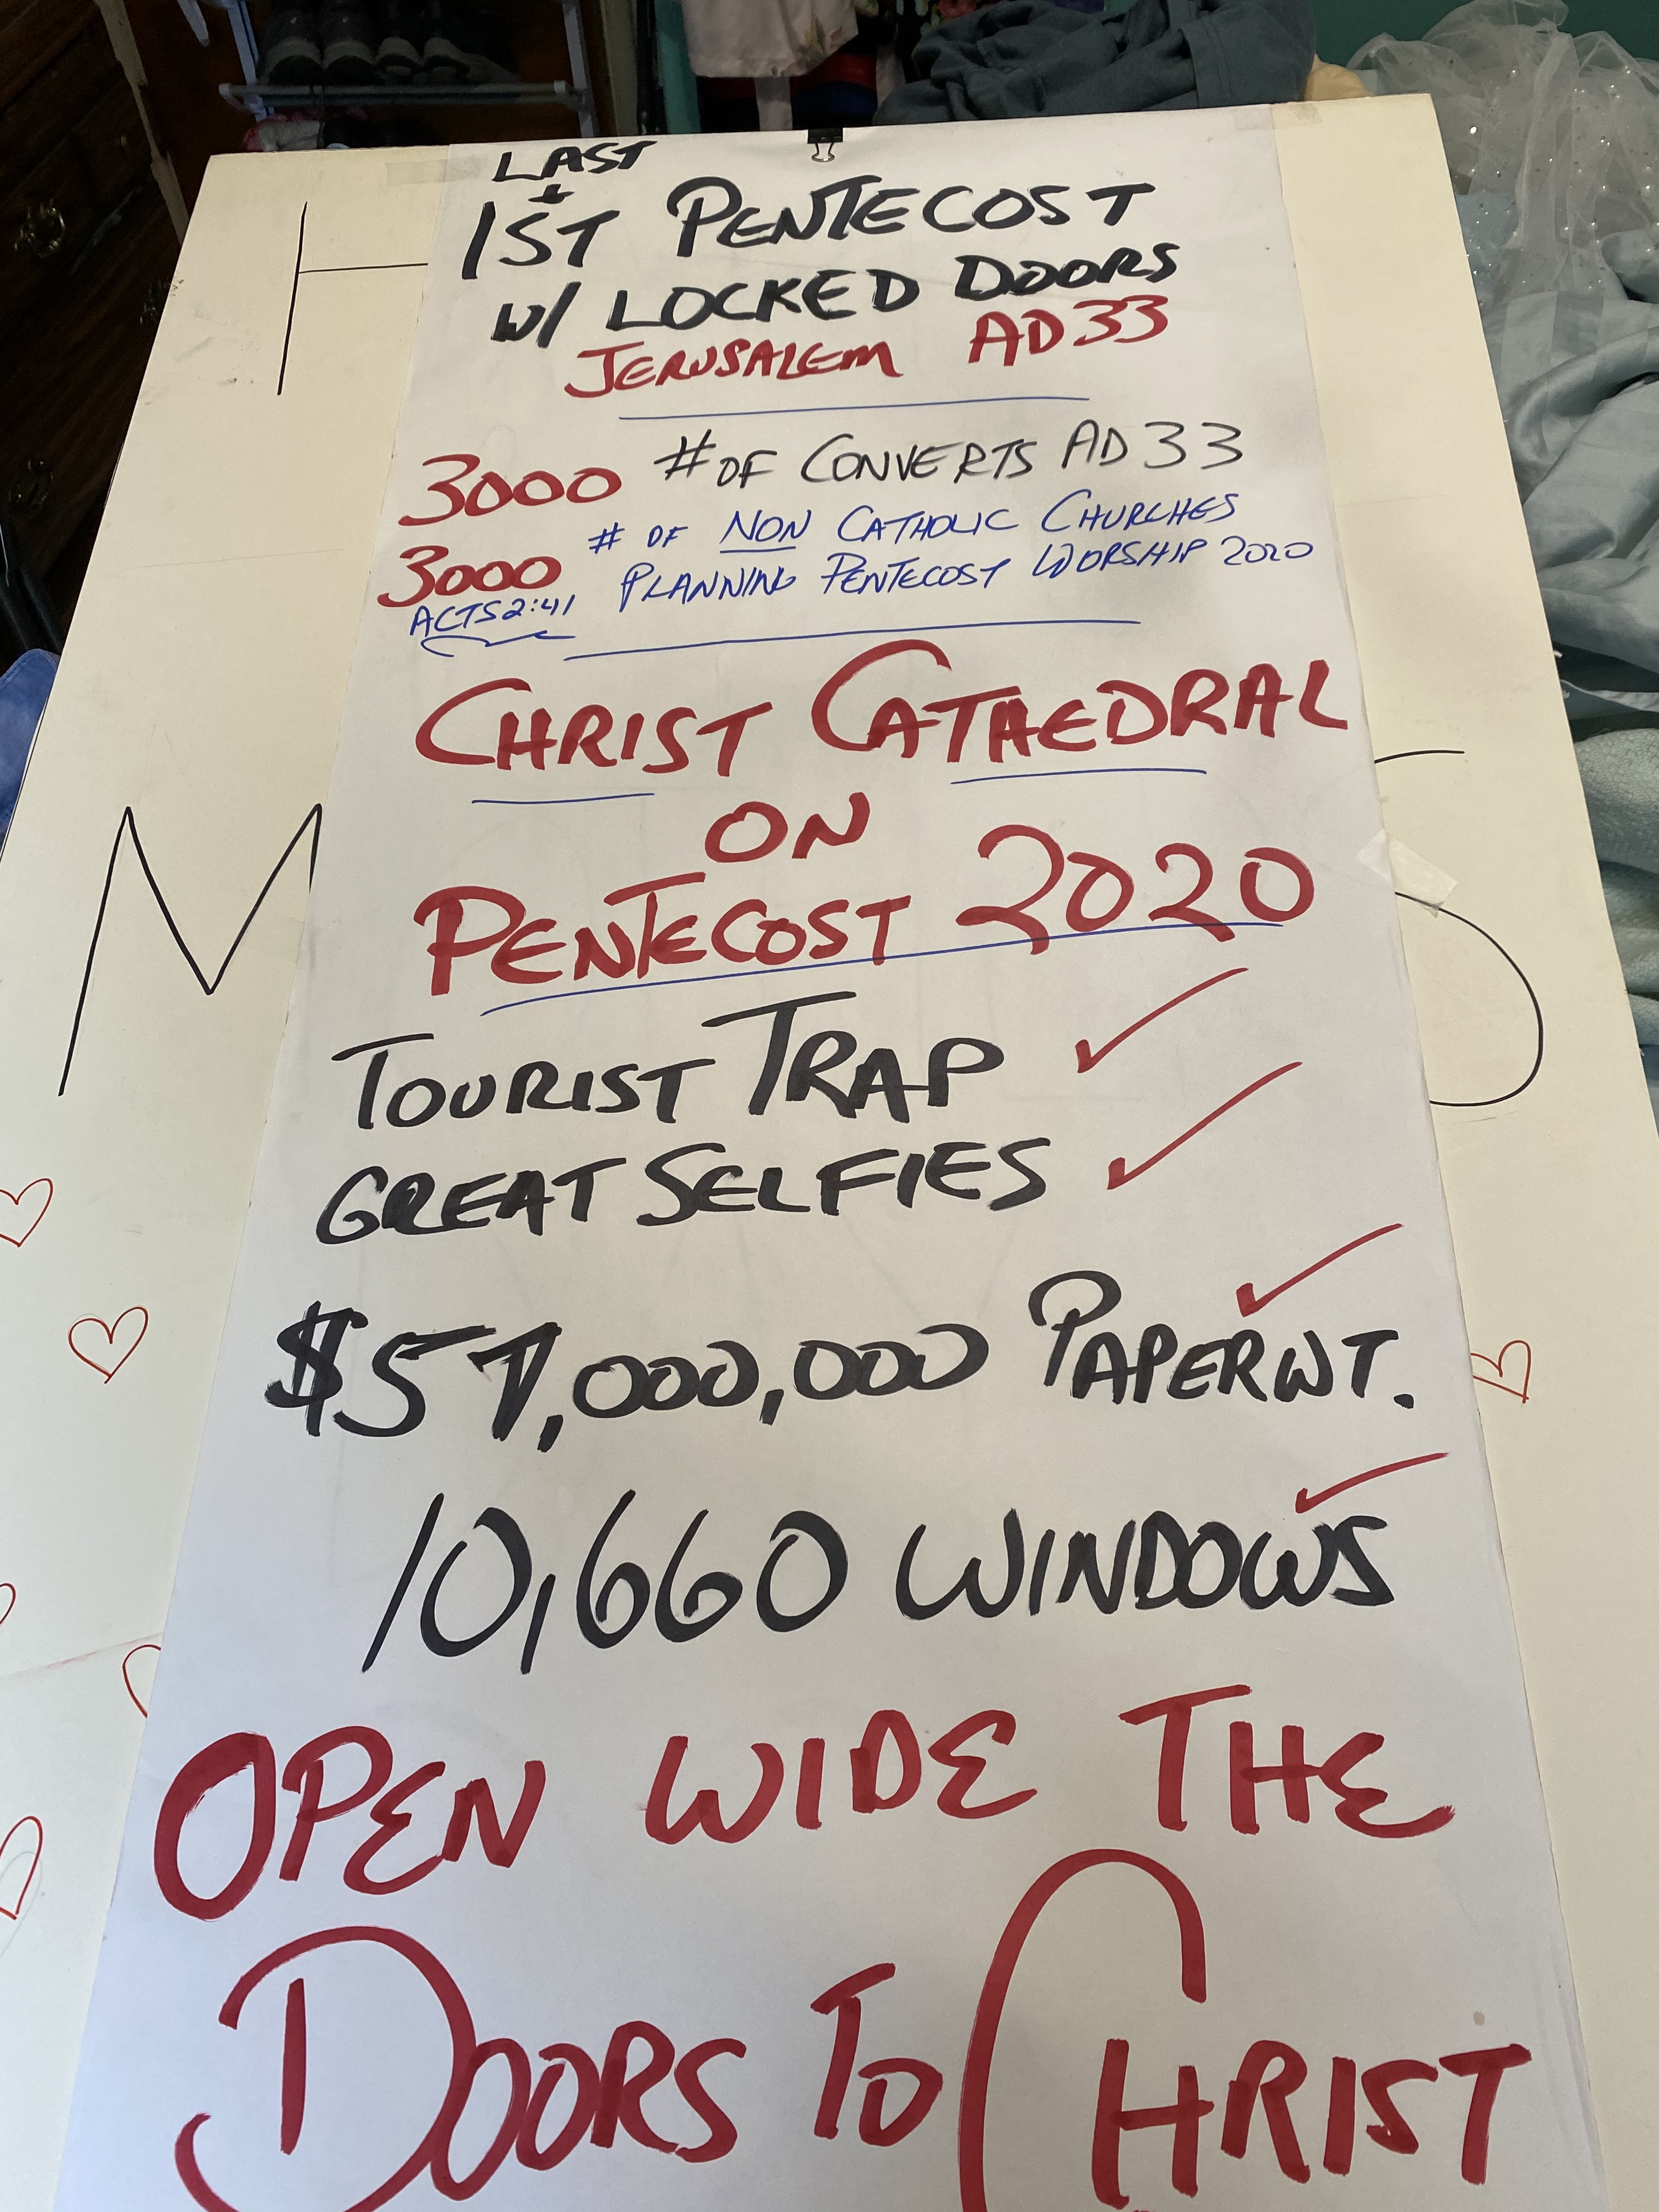 LAST
+
1ST PENTECOST
W/ LOCKED DOORS
JERUSALEM AD 33
3000 # OF CONVERTS AD 33
3000 # OF NON CATHOLIC CHURCHES
PLANNING PENTECOST WORSHIP 2020
ACTS 2:41
CHRIST CATHEDRAL
ON
PENTECOST 2020
TOURIST TRAP ✓
GREAT SELFIES ✓
$57,000,000 PAPERWT. ✓
10,660 WINDOWS ✓
OPEN WIDE THE
DOORS TO CHRIST
H
M S